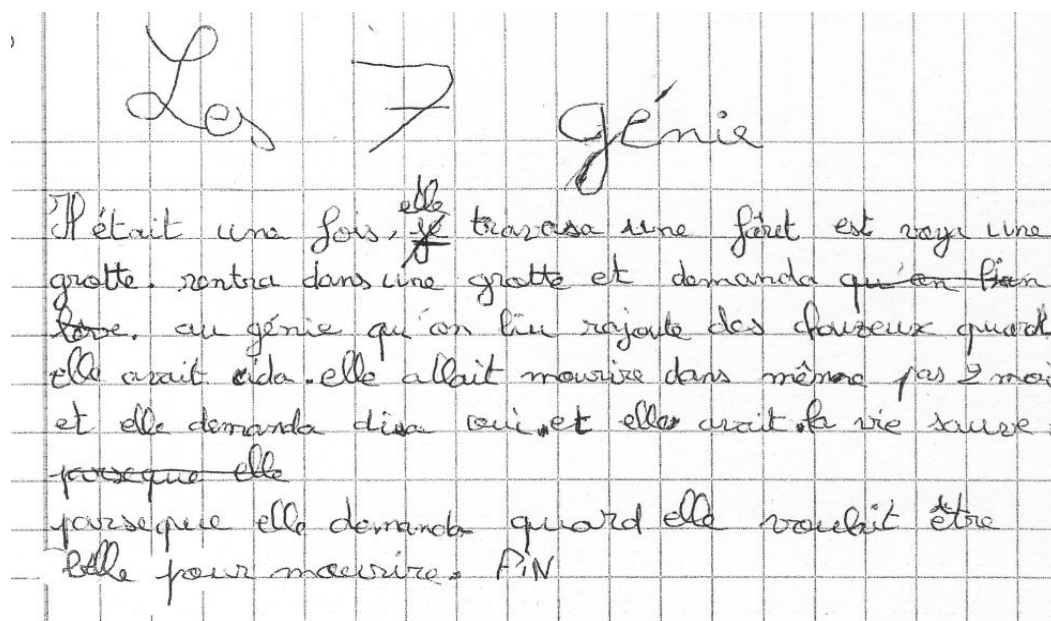 Les 7 génie
elle
Il était une fois, je traversa une fôret est voya une
grotte. rentra dans une grotte et demanda qu'on lian
love. au génie qu'on liu rajoute des
elle avait sida. elle allait mourire dans même pas 2 moi
et elle demanda disa oui. et elle avait la vie sauve.
parseque elle
parseque elle demanda quard elle voulait être
belle pour mourire. FiN